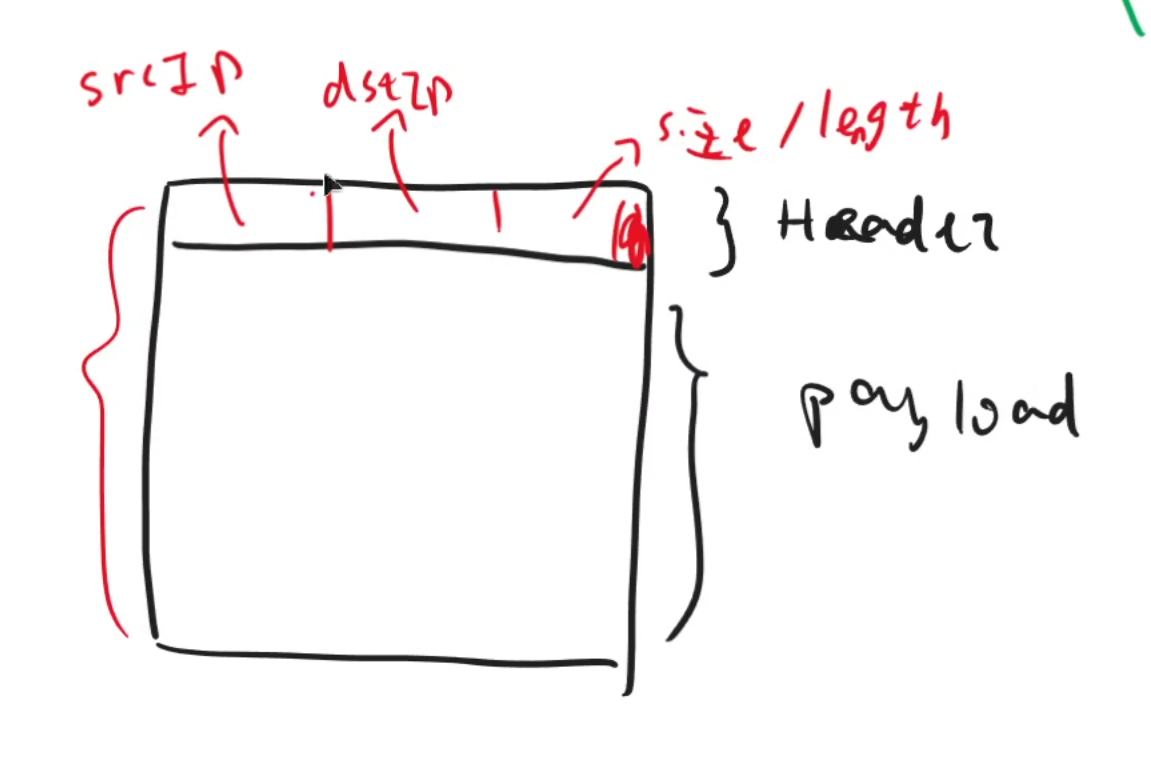 srcIp
dstIp
size/length
Header
payload